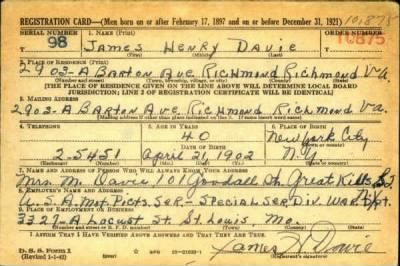 REGISTRATION CARD—(Men born on or after February 17, 1897 and on or before December 31, 1921) 10,875
SERIAL NUMBER 1. NAME (Print) ORDER NUMBER
98 James Henry Davie 10875
2. PLACE OF RESIDENCE (Print)
2903-A Barton Ave Richmond Richmond Va
(Number and street) (Town, township, village, or city) (County) (State)
[THE PLACE OF RESIDENCE GIVEN ON THE LINE ABOVE WILL DETERMINE LOCAL BOARD
JURISDICTION; LINE 2 OF REGISTRATION CERTIFICATE WILL BE IDENTICAL]
3. MAILING ADDRESS
2903-A Barton Ave Richmond Richmond Va
4. TELEPHONE 5. AGE IN YEARS 6. PLACE OF BIRTH
40 New York City
DATE OF BIRTH
2-5451 April 21 1902 N.Y
7. NAME AND ADDRESS OF PERSON WHO WILL ALWAYS KNOW YOUR ADDRESS
Mrs. M. Davie, 101 Goodall Great Kills
8. EMPLOYER'S NAME AND ADDRESS
U.S.A. Mot. Picts. Ser.- Special Ser. Div. War Dept.
9. PLACE OF EMPLOYMENT OR BUSINESS
3327-A Locust St. St. Louis, Mo.
(Number and street or R. F. D. number) (Town) (County) (State)
I AFFIRM THAT I HAVE VERIFIED ABOVE ANSWERS AND THAT THEY ARE TRUE.
D. S. S. Form 1
(Revised 1-1-42) James H Davie